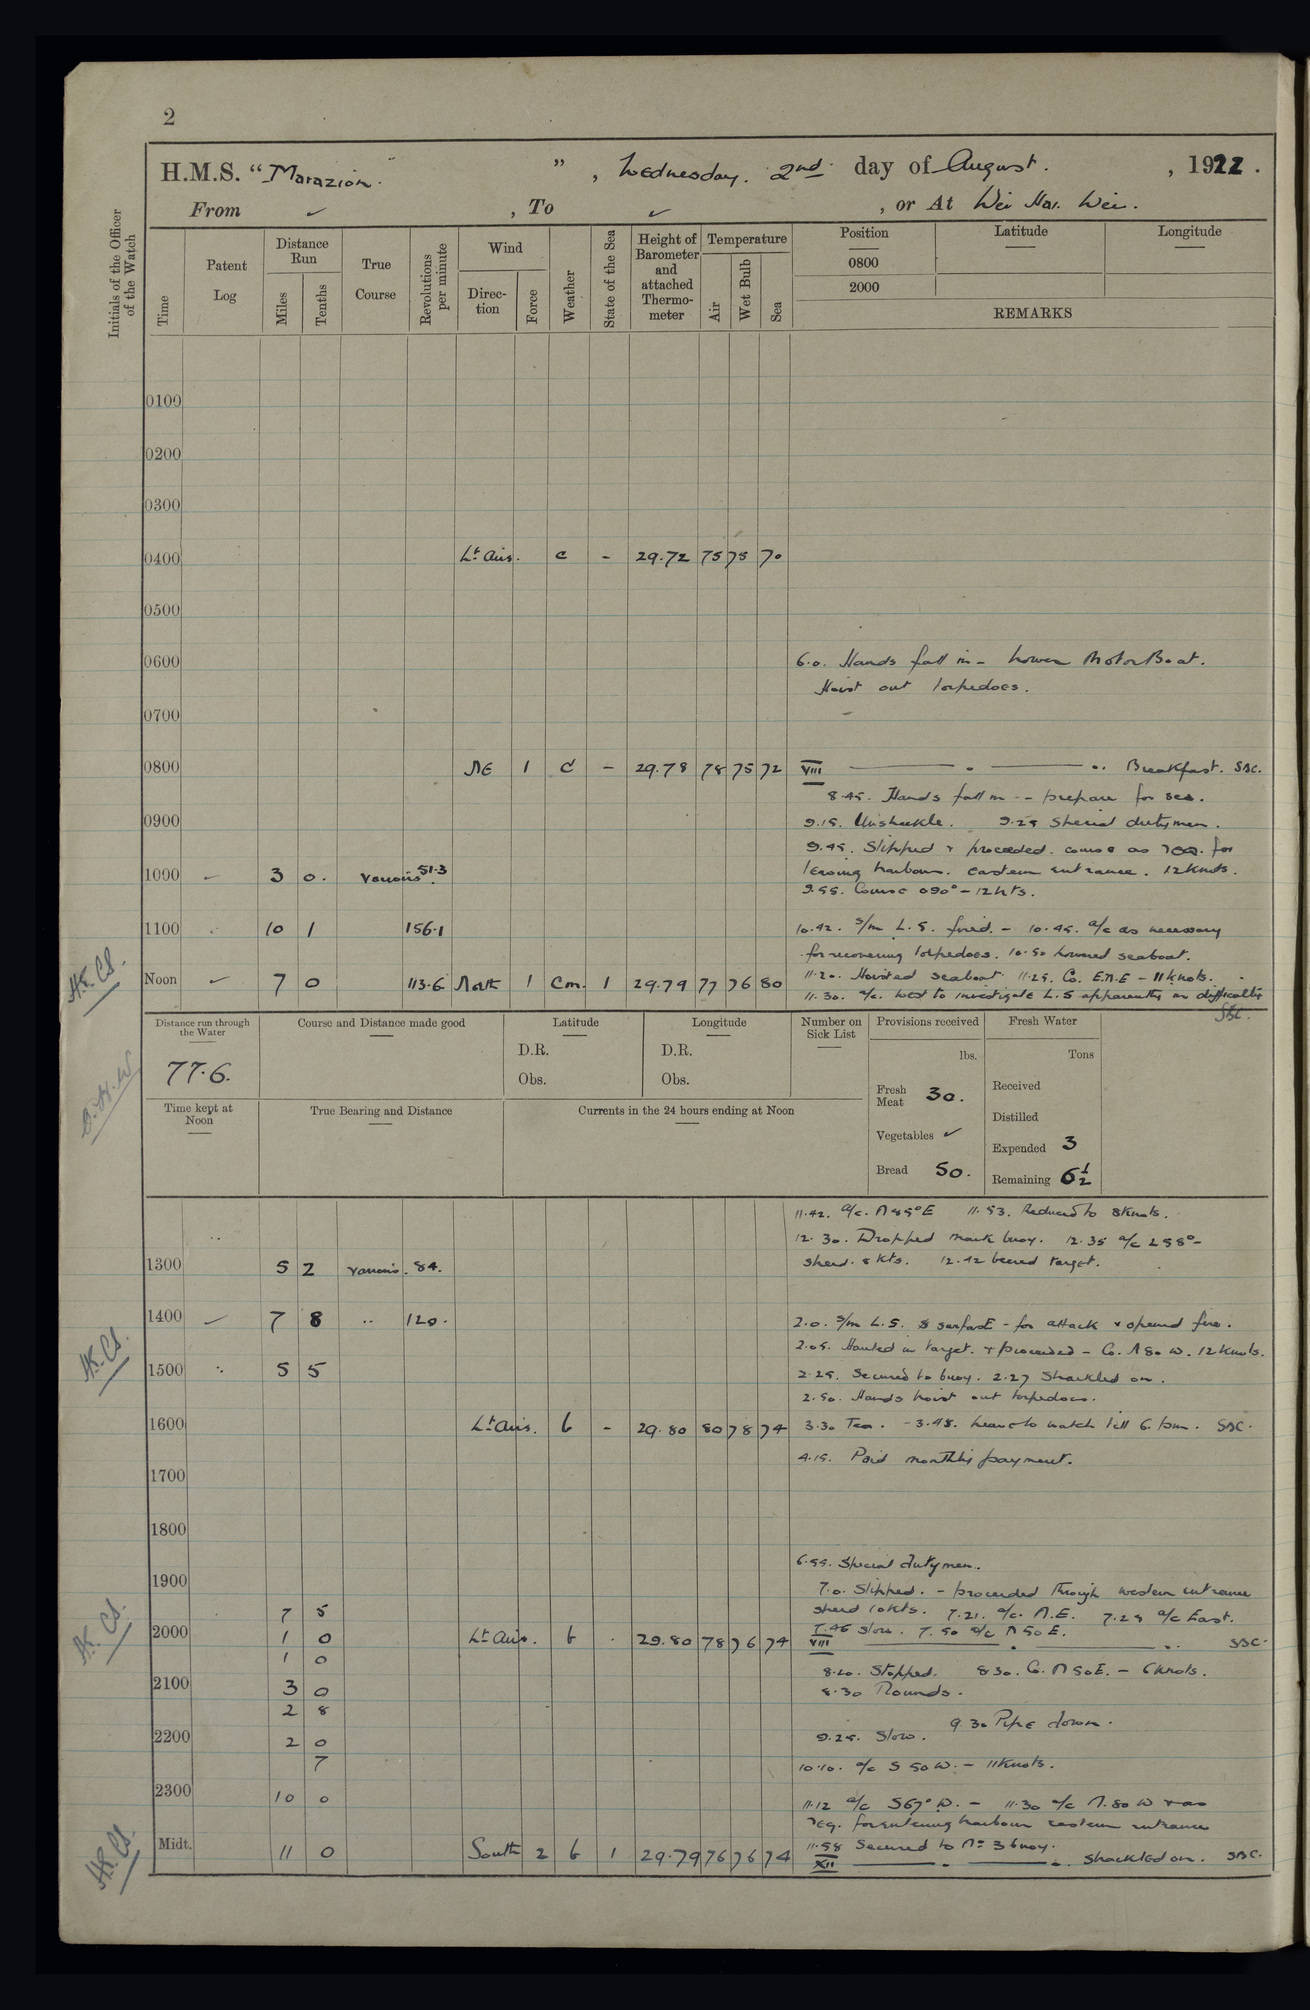 2
H.M.S. "Marazion.", Wednesday. 2nd day of August. , 1922.
From ✓ , To ✓ , or At Wei Hai Wei.
Initials of the Officer of the Watch
Time
Patent Log
Distance Run
Miles
Tenths
True Course
Revolutions per minute
Wind
Direc-tion
Force
Weather
State of the Sea
Height of Barometer and attached Thermo-meter
Temperature
Air
Wet Bulb
Sea
Position
Latitude
Longitude
0800
2000
REMARKS
0100
0200
0300
0400 Lt. Airs. c - 29.72 75 75 70
0500
0600 6.0. Hands fall in - Lower Motor Boat.
Hoist out torpedoes.
0700
0800 NE 1 c - 29.78 78 75 72 VIII Breakfast. SBC.
8.45. Hands fall in -- prepare for sea.
0900 9.15. Unshackle. 9.25 Special dutymen.
9.45. Slipped & proceeded. course as req. for
1000 ✓ 3 0. various 51.3 leaving harbour. eastern entrance. 12 Knots.
9.55. Course 090° - 12 kts.
1100 10 1 156.1 10.42. S/m L.5. fired. - 10.45. a/c as necessary
for recovering torpedoes. 10.50 lowered seaboat.
Noon ✓ 7 0 113.6 North 1 Cm. 1 29.79 77 76 80 11.20. Hoisted seaboat. 11.25. Co. E.N.E - 11 knots.
11.30. a/c. West to investigate L.5 apparently in difficulties
SBC.
Distance run through the Water
77.6.
Course and Distance made good
Latitude
D.R.
Obs.
Longitude
D.R.
Obs.
Number on Sick List
Provisions received
lbs.
Fresh Meat 30.
Vegetables ✓
Bread 50.
Fresh Water
Tons
Received
Distilled
Expended 3
Remaining 6½
Time kept at Noon
True Bearing and Distance
Currents in the 24 hours ending at Noon
11.42. a/c. N 85° E 11.53. Reduced to 8 Knots.
12.30. Dropped mark buoy. 12.35 a/c 258° -
1300 5 2 various. 84. speed. 8 kts. 12.42 target.
1400 ✓ 7 8 .. 120. 2.0. S/m L.5. - for attack & opened fire.
2.05. Hauled in target. & proceeded - Co. N 80 W. 12 Knots.
1500 5 5 2.25. Secured to buoy. 2.27 Shackled on.
2.50. Hands hoist out torpedoes.
1600 Lt. Airs. b - 29.80 80 78 74 3.30 Tea. - 3.48. leave to watch till 6. p.m. SBC.
4.15. Paid monthly payment.
1700
1800
6.55. Special dutymen.
1900 7.0. Slipped. - proceeded through western entrance
7 5 speed 10 kts. 7.21. a/c. N.E. 7.25 a/c East.
2000 1 0 Lt. Airs. b . 29.80 78 76 74 7.46 Slow. 7.50 a/c N 50 E.
VIII SBC.
1 0
8.20. Stopped. 8.30. Co. N 50 E. - 6 knots.
2100 3 0 8.30 Rounds.
2 8
9.30 Pipe down.
2200 2 0 9.25. Slow.
7 10.10. a/c S 50 W. - 11 Knots.
2300 10 0 11.12 a/c S 67° W. - 11.30 a/c N. 80 W & as
req. for entering harbour eastern entrance
11.58 Secured to No. 3 buoy.
Midt. 11 0 South 2 b 1 29.79 76 76 74 XII Shackled on. SBC.